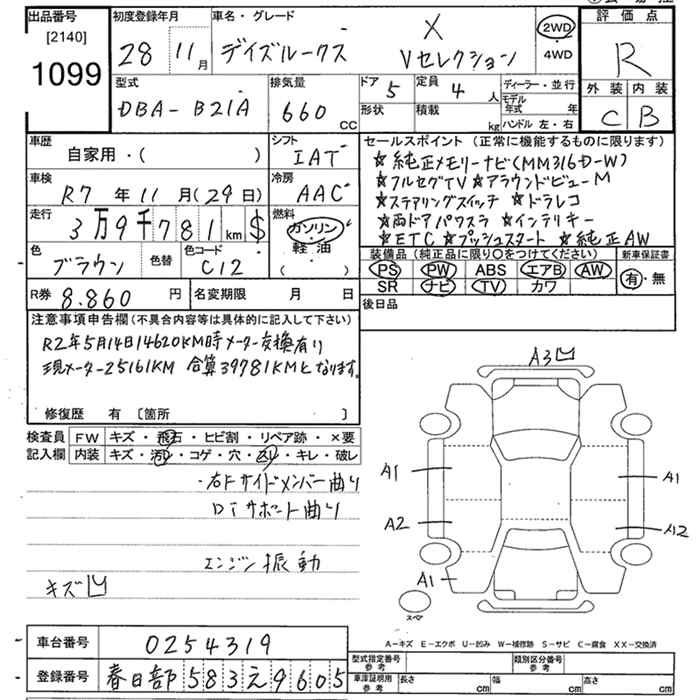 出品番号
[2140]
1099
初度登録年月
28 11月
車名・グレード
デイズルークス X Vセレクション
2WD
・
4WD
評価点
R
外装 内装
C B
型式
DBA-B21A
排気量
660 CC
ドア 5
形状
定員 4 人
積載 kg
ディーラー・並行
モデル年式 年
ハンドル 左・右
車歴
自家用・( )
シフト
IAT
車検
R7年11月(29日)
冷房
AAC
走行
3万9千781km $
燃料
ガソリン
軽油
( )
色
ブラウン
色替
色コード
C12
R券
8.860円
名変期限 月 日
セールスポイント(正常に機能するものに限ります)
☆純正メモリーナビ(MM316D-W)
☆フルセグTV☆アラウンドビューM
☆ステアリングスイッチ ☆ドラレコ
☆両ドアパワスラ ☆インテリキー
☆ETC☆プッシュスタート ☆純正AW
装備品(純正品に限り〇をつけてください)
PS PW ABS エアB AW
SR ナビ TV カワ
新車保証書
有・無
後日品
注意事項申告欄(不具合内容等は具体的に記入して下さい)
R2年5月14日14620KM時メーター交換有り
現メーター25161KM 合算39781KMとなります。
修復歴 有 〔箇所 〕
検査員記入欄
FW キズ・飛石・ヒビ割・リペア跡・×要
内装 キズ・汚レ・コゲ・穴・スレ・キレ・破レ
・右Fサイドメンバー曲り
ロアサポート曲り
エンジン振動
キズ凹
A3凹
A1 A1
A2 A2
A1
スペア
A-キズ E-エクボ U-凹み W-補修跡 S-サビ C-腐食 XX-交換済
車台番号 0254319
登録番号 春日部583え9605
型式指定番号
参考
類別区分番号
参考
車庫証明用
参考
長さ cm 幅 cm 高さ cm